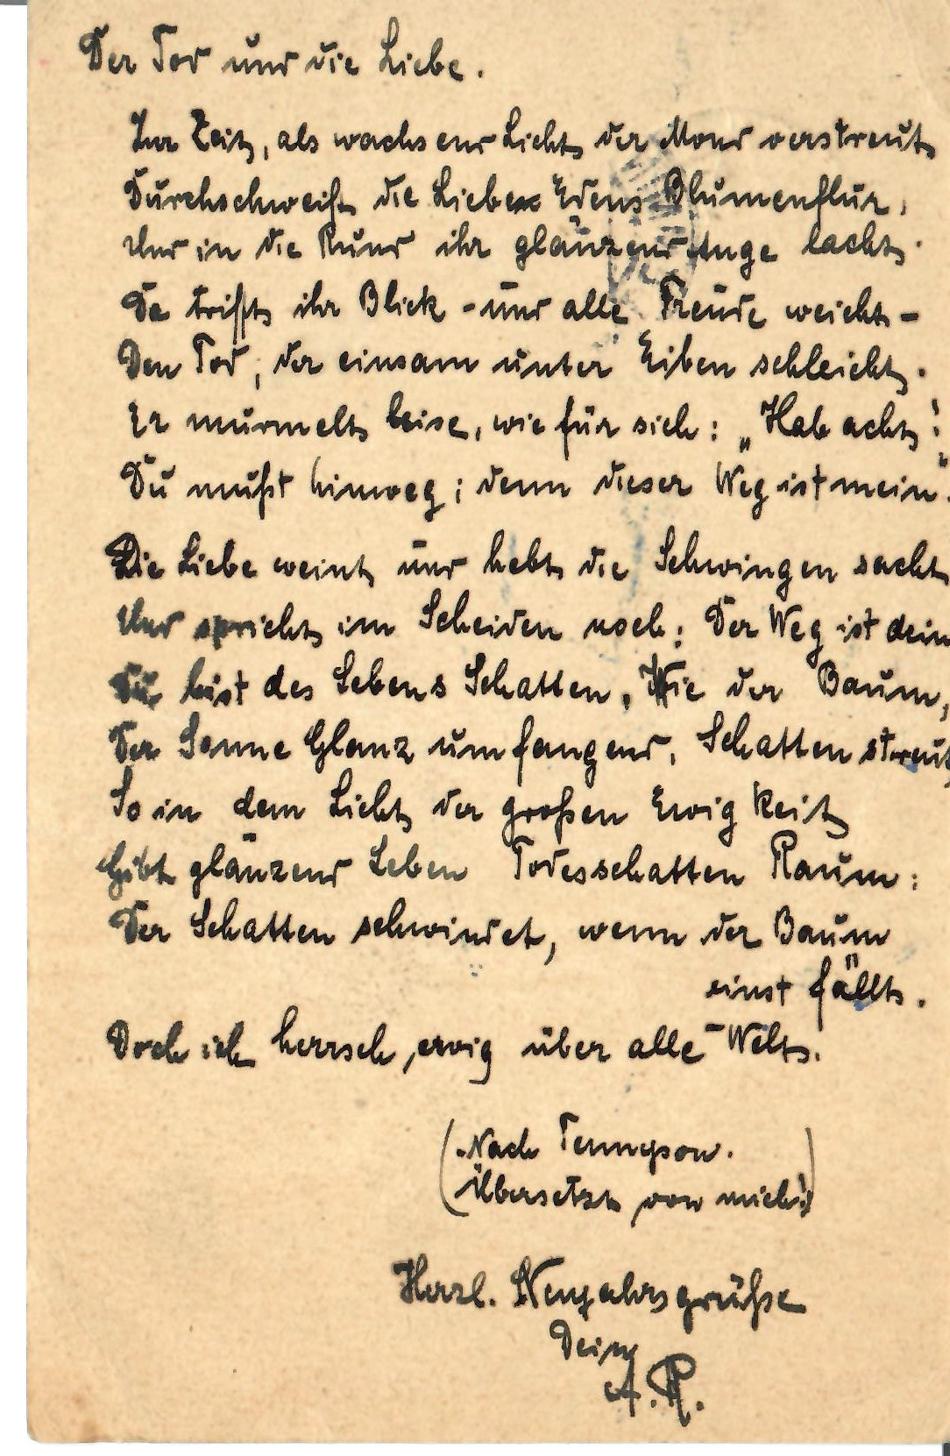 Der Tod und die Liebe.
Zur Zeit, als wachsend Licht der Mond verstreut,
Durchschweift die Liebe Edens Blumenflur,
Und in die Rund ihr glänzend Auge lacht.
Da trifft ihr Blick - und alle Freude weicht -
Den Tod, der einsam unter Eiben schleicht.
Er murmelt leise, wie für sich: „Hab acht!
Du mußt hinweg; denn dieser Weg ist mein."
Die Liebe weint und hebt die Schwingen sacht
Und spricht im Scheiden noch: Der Weg ist dein
Du bist des Lebens Schatten. Wie der Baum,
Der Sonne Glanz umfangend, Schatten streut,
So in dem Licht der großen Ewigkeit
Gibt glänzend Leben Todesschatten Raum:
Der Schatten schwindet, wenn der Baum
einst fällt.
Doch ich herrsch ewig über alle Welt.
(Nach Tennyson.
Übersetzt von mich!)
Herzl. Neujahrsgrüße
Dein
A. R.